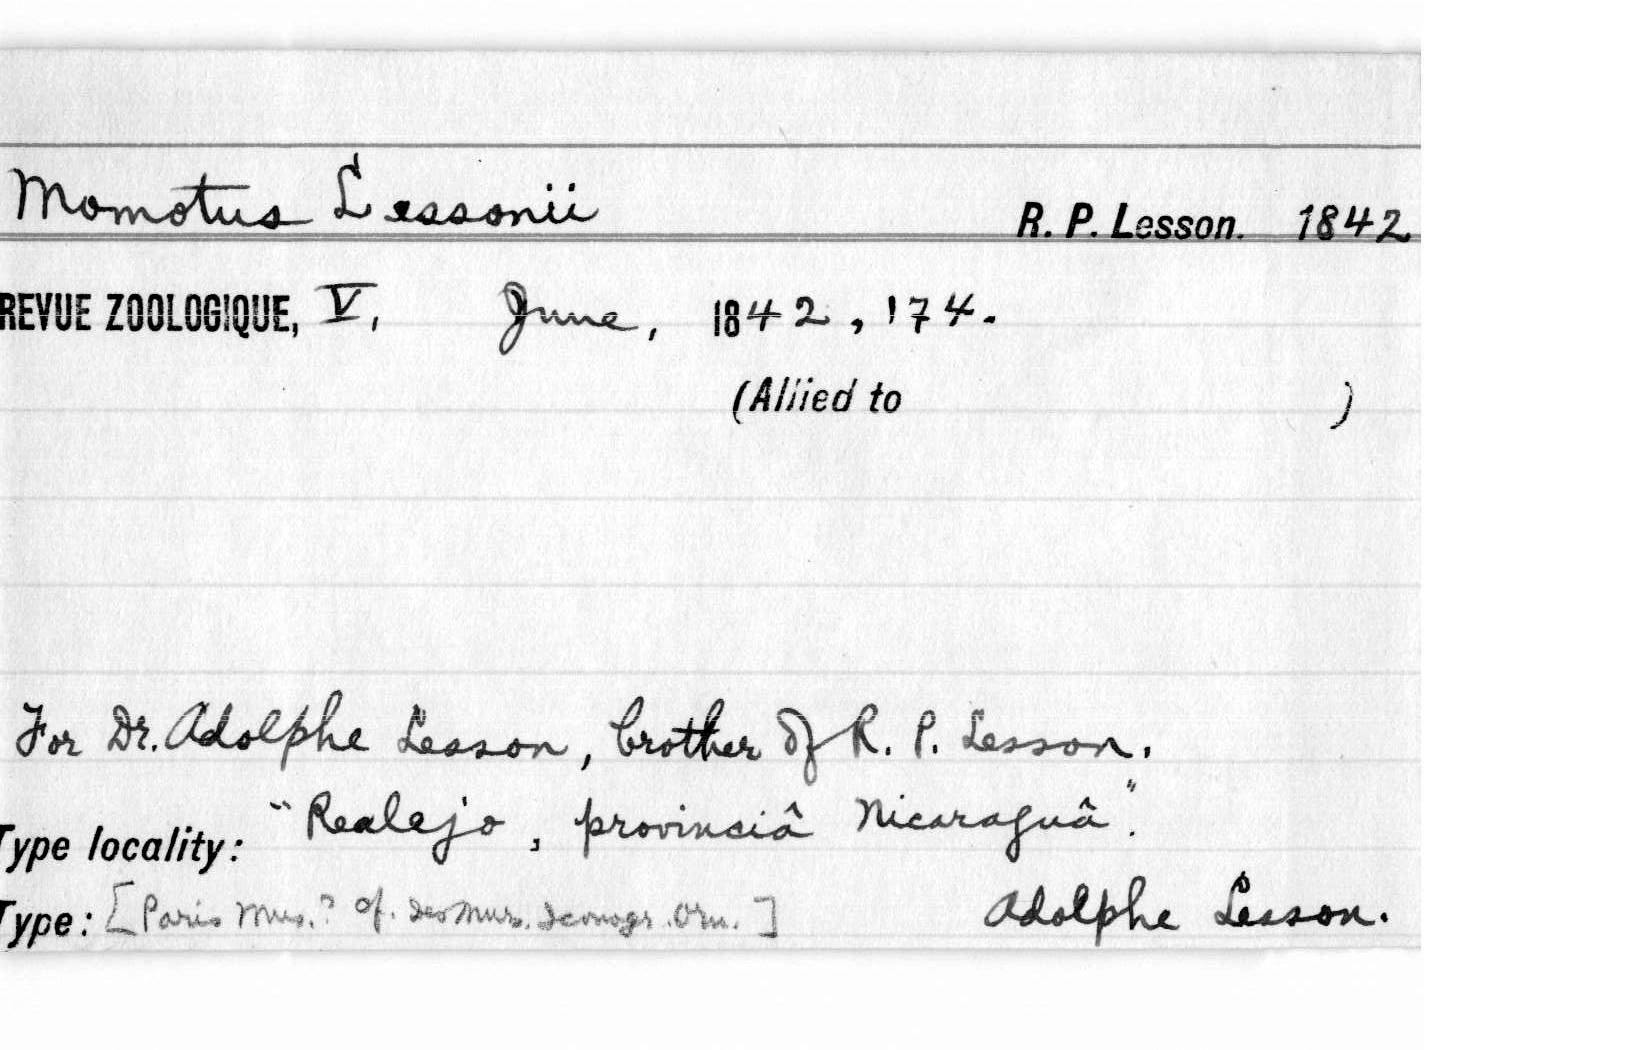 Momotus Lessonii
R. P. Lesson. 1842
REVUE ZOOLOGIQUE, V, June, 1842, 174.
(Allied to )
For Dr. Adolphe Lesson, brother of R. P. Lesson.
Type locality: "Realejo, provinciâ Nicaraguâ".
Type: [Paris Mus.? cf. DesMurs. Iconogr. Orn.] Adolphe Lesson.